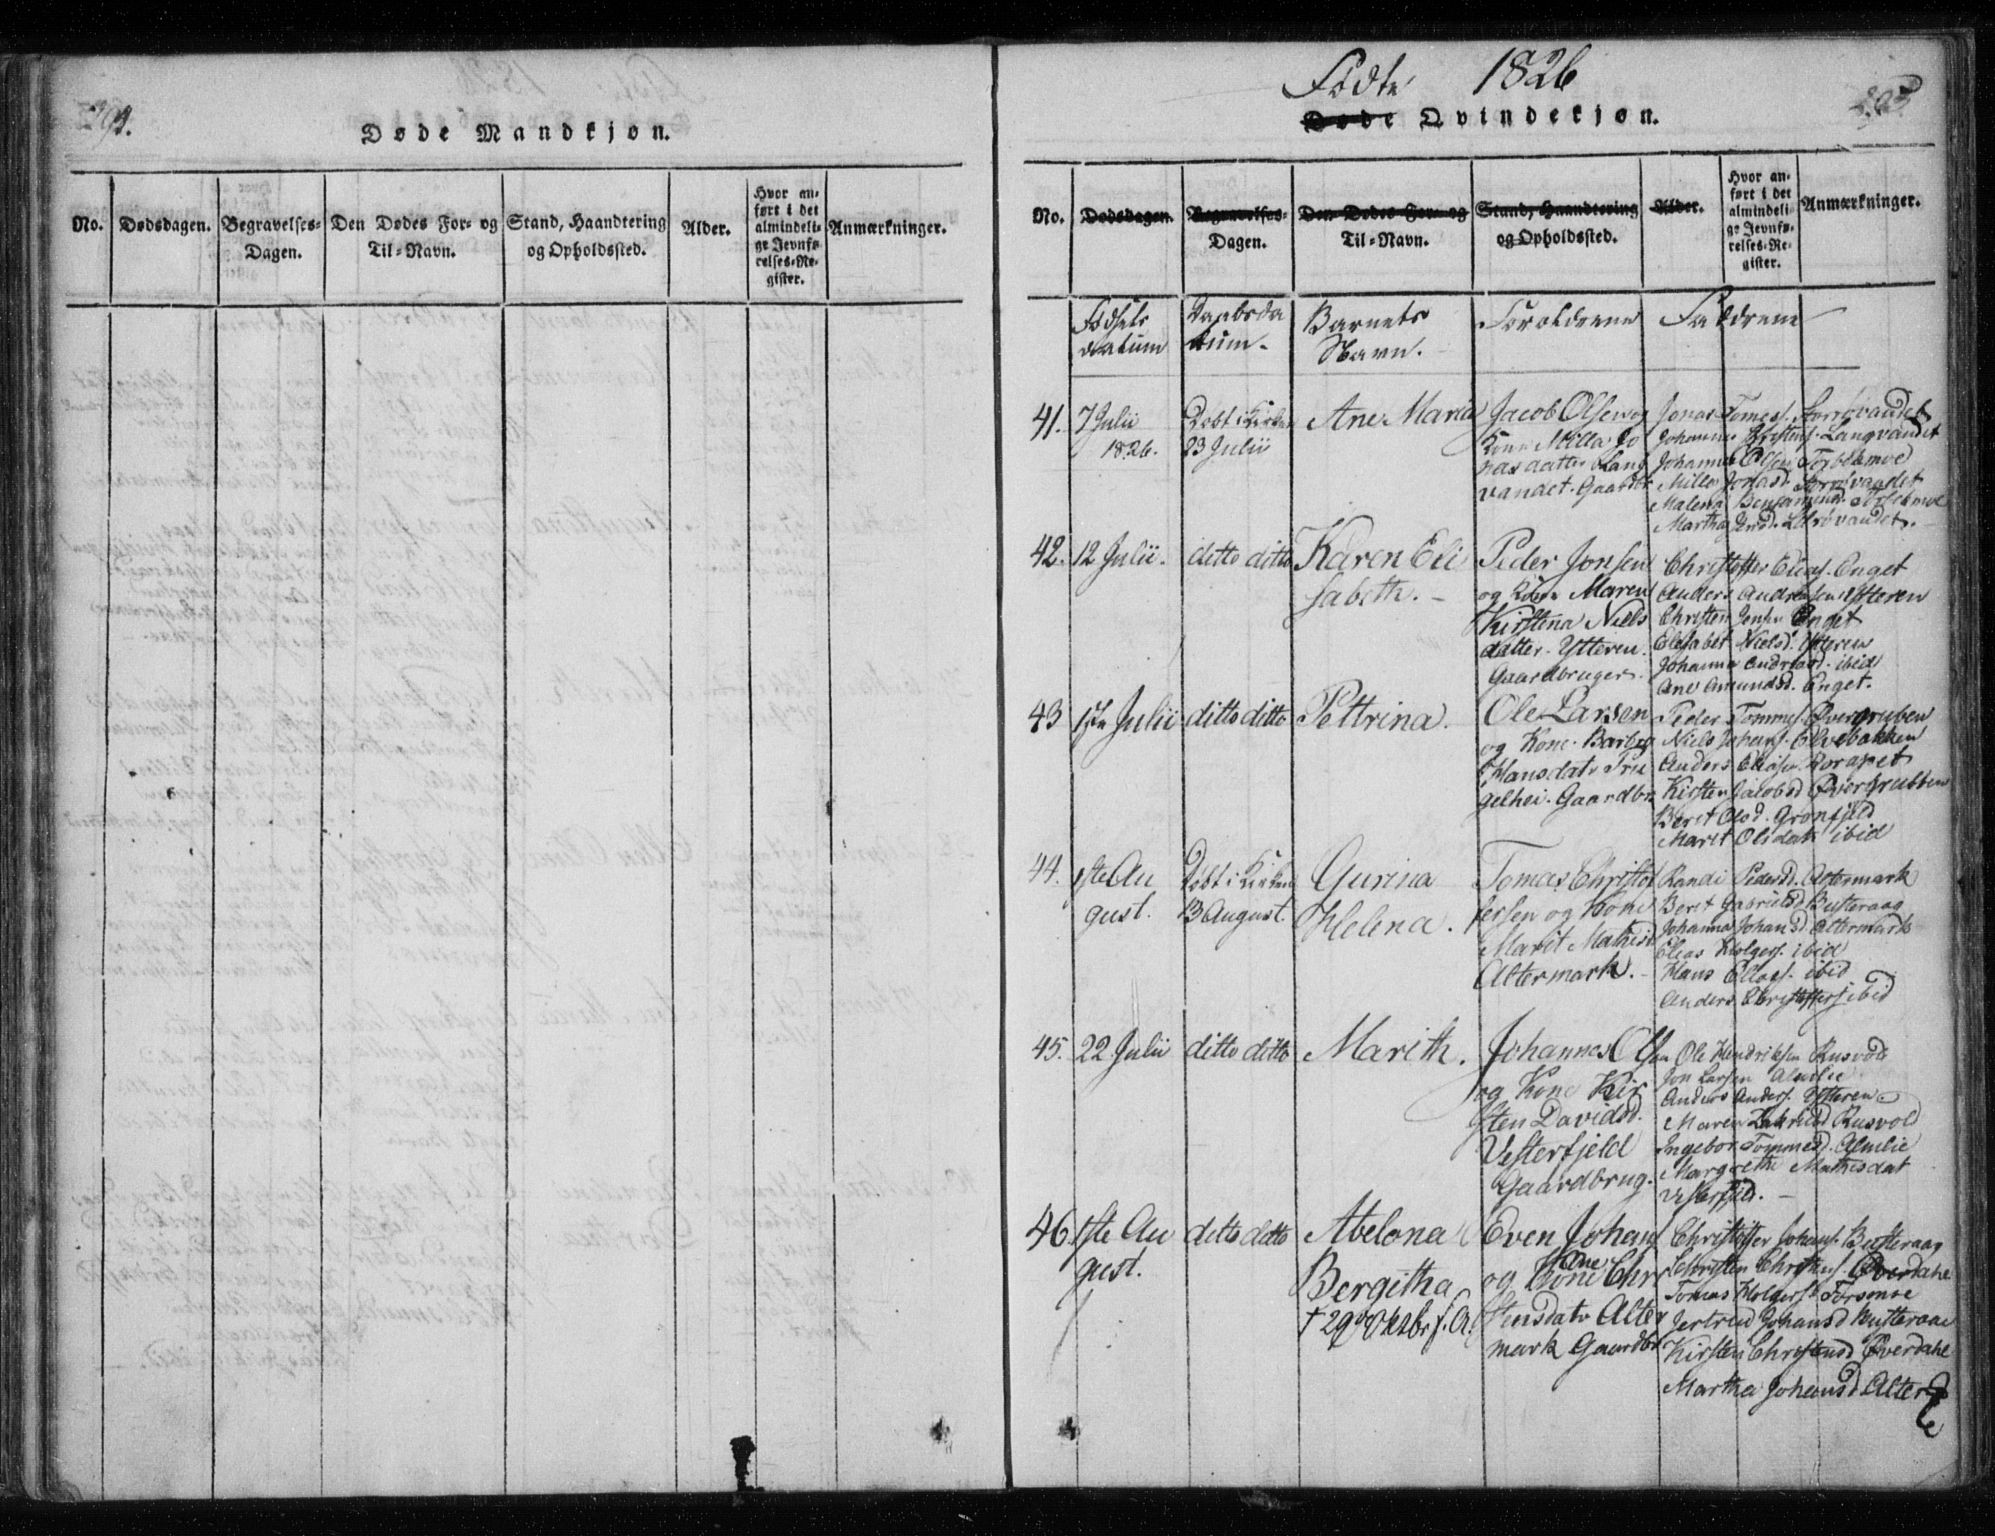 294.
Døde Mandkjøn.
No.
Dødsdagen.
Begravelses-
Dagen.
Den Dødes For- og
Til-Navn.
Stand, Haandtering
og Opholdssted.
Alder.
Hvor an-
ført i det
almindeli-
ge Jevnfø-
relses-Re-
gister.
Anmærkninger.
Fødte 1826
295
Døde Qvindekjøn.
No.
Dødsdagen.
Begravelses-
Dagen.
Den Dødes For- og
Til-Navn.
Stand, Haandtering
og Opholdssted.
Alder.
Hvor an-
ført i det
almindeli-
ge Jevnfø-
relses-Re-
gister.
Anmærkninger.
Fødsels
datum
Daabsda
tum.
Barnets
Navn.
Forældrene
Faddrene
41.
7 Julii
1826.
Døbt i Kirken
23 Julii
Ane Maria
Jacob Olsen og
Kone Milla Jo
nasdatter Lang
vandet. Gaardbr
Jonas Tomes.
Johannes Christens. Langvandet
Johannes Olsen
Milla Jonasd.
Malena Benjamind.
Martha Jensd.
42.
12 Julii.
ditto ditto
Karen Eli
sabeth.
Peder Jonsen
og Kone Maren
Kirstina Niels
datter. Ytteren.
Gaardbruger.
Christoffer Elias. Enget
Anders Andersen Ytteren
Christen Jensen Enget
Elisabet Nielsd. Ytteren
Johanna Andreasd. ibid
Ane Amundsd. Enget.
43
Julii
ditto ditto
Pettrina.
Ole Larsen
og Kone. Barbro
Hansdatr
gelhei. Gaardbr.
Peder Tommes. Øvergruben
Niels Johans. Elvebakken
Anders Elias.
Kirsten Jacobsd Øvergrubben
Beret Olsd. Grønfjeld
Marit Olsdatr ibid
44.
1ste Au
gust.
Døbt i Kirken
13 August.
Gurina
Helena.
Tomas Christof
fersen og Kone
Marit Mathisd
Altermark.
Randi Pedersd. Altermark
Beret Gabrielsd Busteraag
Johanna Johansd. Altermark
Elias Holgers. ibid
Hans Elias. ibid
Anders Christoffers ibid
45.
22 Julii
ditto ditto
Marith.
Johannes Olsen
og Kone Kir
sten Davidsd.
Vesterfjeld
Gaardbrug.
Ole Hendriksen Rusvold
Jon Larsen Almlie
Anders Anders. Ytteren
Maren Rusvold
Ingebor Tommesd. Almlie
Margrethe Mathisdat
Vesterfjld.
46.
1ste Au
gust.
ditto ditto
Abelona
Bergitha
† 29de Oktbr f. A.
Even Johans
og Kone Ane Chri
stensdatr Alter
mark Gaardbr
Christoffer Johans. Busteraag
Christen Christens. Øverdahl
Tomas Holgers. Forsmoe
Jertrud Johansd Busteraae
Kirsten Christensd Øverdahl
Martha Johansd. Alter